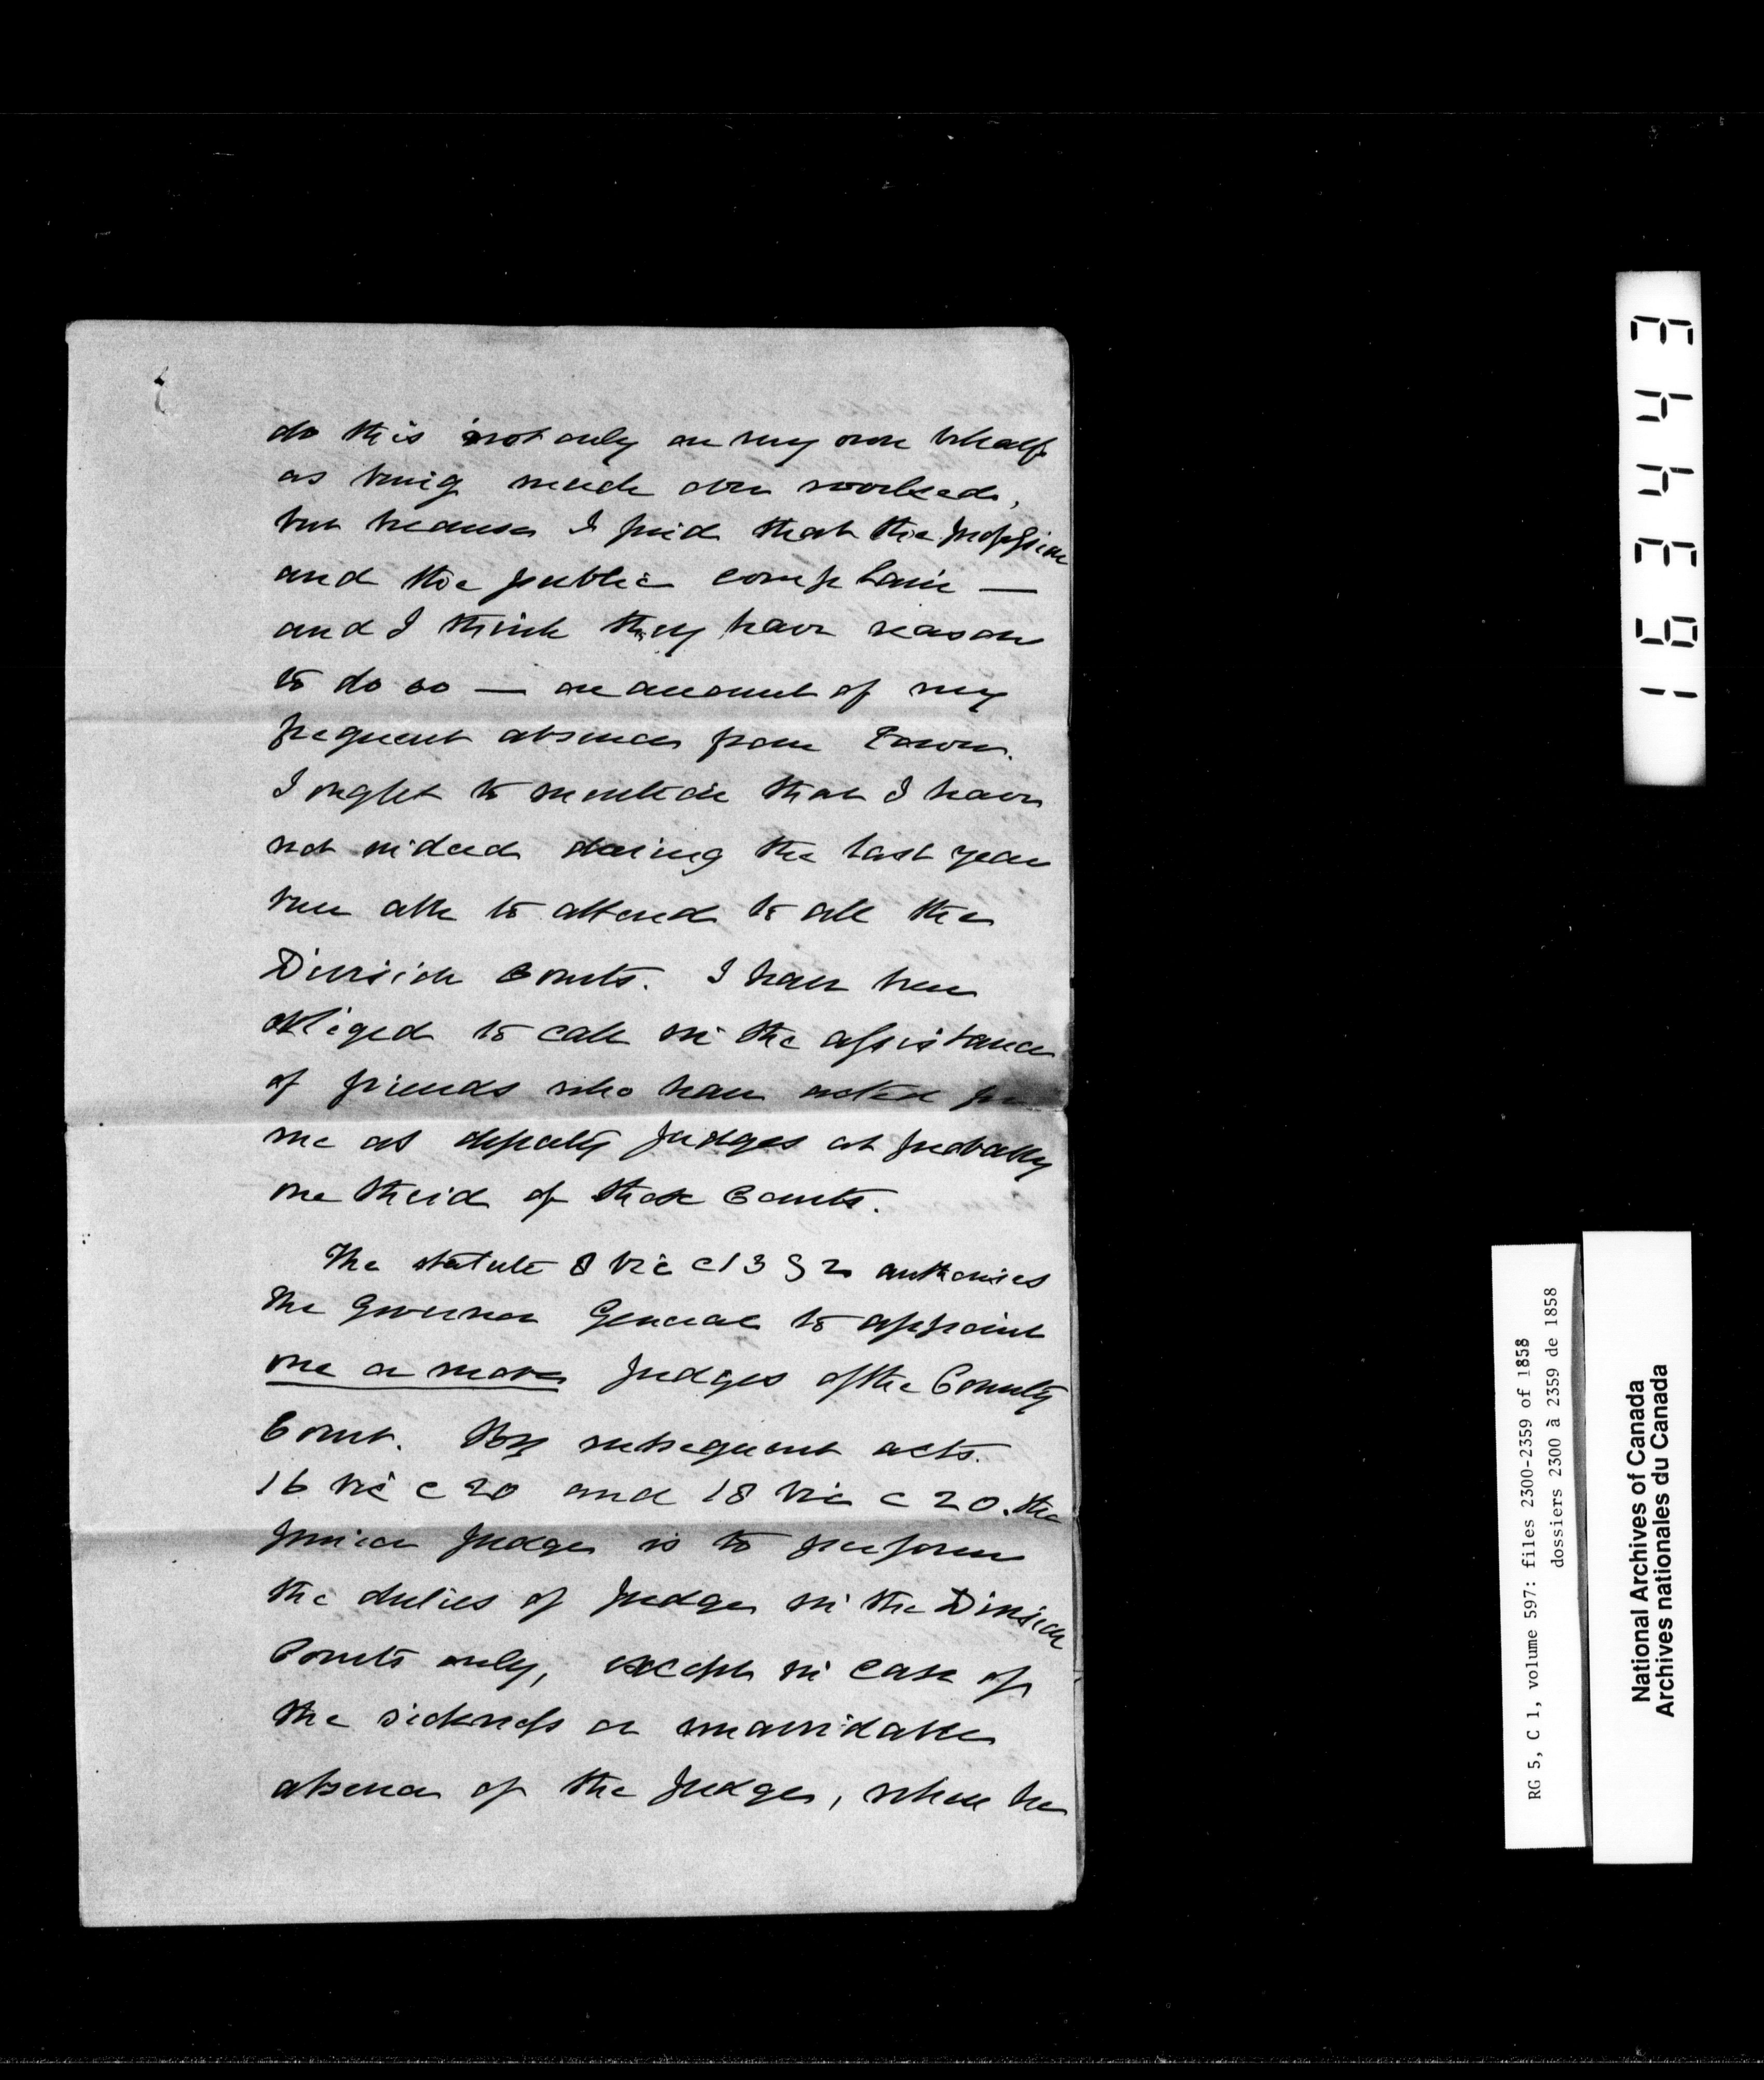 do this not only on my own behalf
as being much over worked,
but because I find that the profession
and the public complain —
and I think they have reason
to do so — on account of my
frequent absences from Town.
I ought to mention that I have
not indeed during the last year
been able to attend to all the
Division Courts. I have been
obliged to call in the assistance
of friends who have acted for
me as deputy judges at probably
one third of those Courts.
The statute 8 Vic c13 S 2 authorises
the Governor General to appoint
one or more Judges of the County
Court. By subsequent acts.
16 Vic c 20 and 18 Vic c 20. the
Junior Judge is to perform
the duties of Judge in the Division
Courts only, except in case of
the sickness or unavoidable
absence of the Judge, when he
163443
RG 5, C 1, volume 597: files 2300-2359 of 1858
dossiers 2300 à 2359 de 1858
National Archives of Canada
Archives nationales du Canada